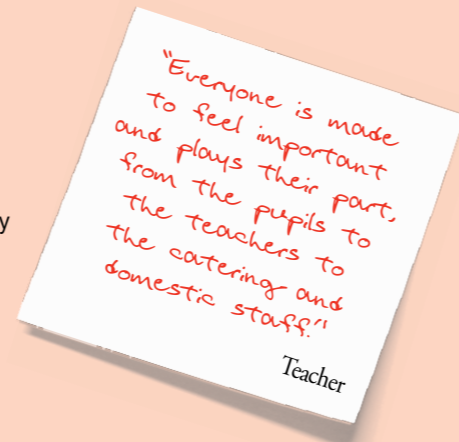 y
“Everyone is made
to feel important
and plays their part,
from the pupils to
the teachers to
the catering and
domestic staff.”
Teacher